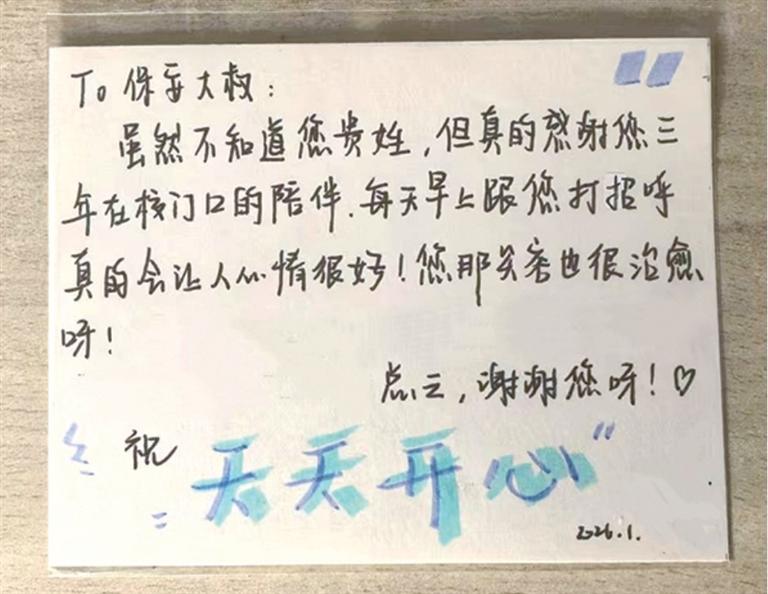 To 保安大叔:
虽然不知道您贵姓,但真的感谢您三
年在校门口的陪伴.每天早上跟您打招呼
真的会让人心情很好!您那笑容也很治愈
呀!
总之,谢谢您呀!♡
祝 天天开心
2026.1.